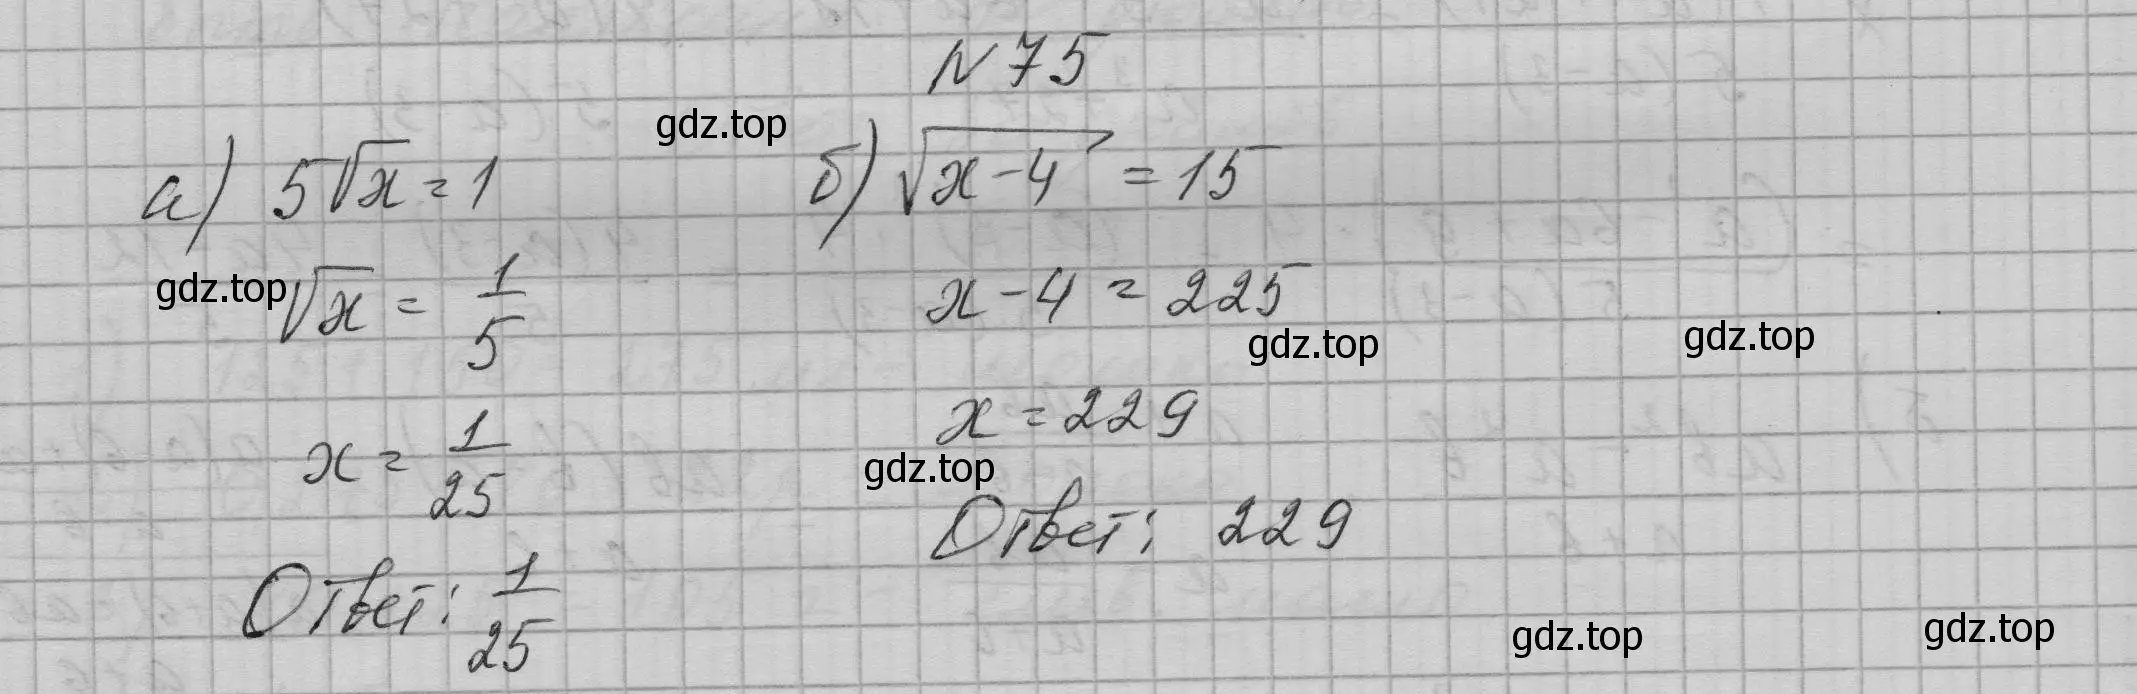 N 75
а) 5√x = 1
√x = 1/5
x = 1/25
Ответ: 1/25
б) √(x - 4) = 15
x - 4 = 225
x = 229
Ответ: 229
gdz.top
gdz.top
gdz.top
gdz.top
gdz.top
gdz.top
gdz.top